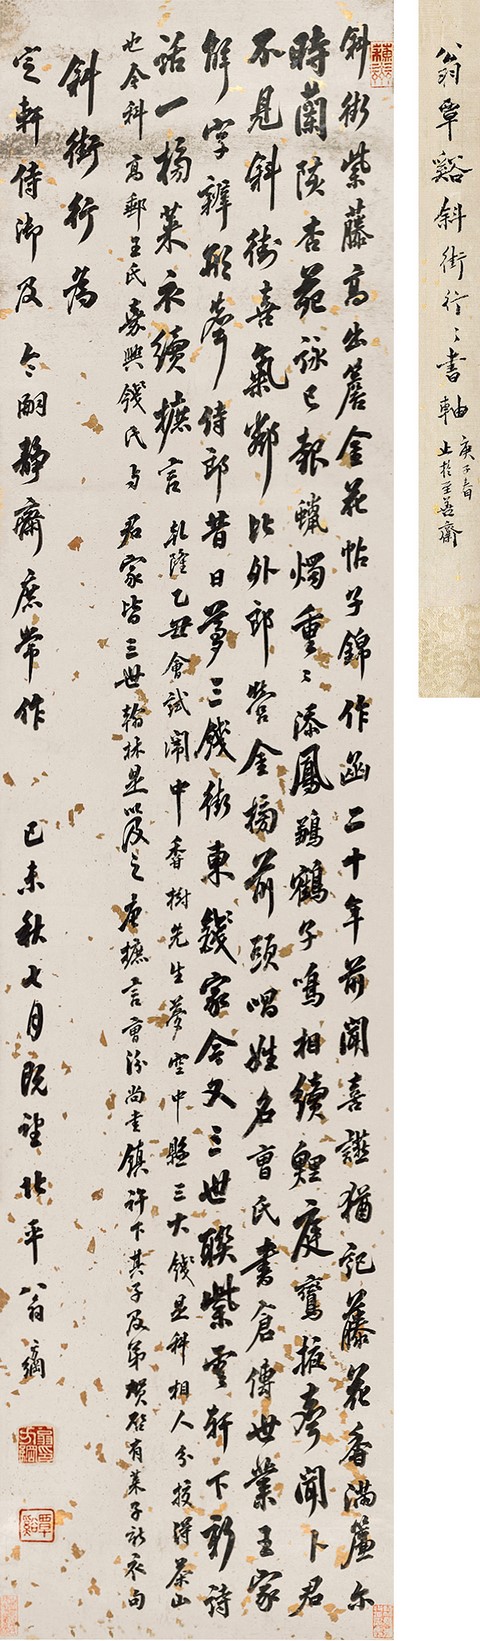 翁覃谿斜街行行書軸
庚子春
止於至善齋
斜街紫藤高出簷金花帖子錦作函二十年前聞喜讌猶記藤花香滿簾爾
時蘭陔杏苑詠已報蠟燭重重添鳳鷁鶴子鳴相續鯉庭鸞掖聲聞卜君
不見斜街喜氣鄰比外郎營金榜前頭唱姓名曹氏書倉傳世業王家
解字辨形聲侍郎昔日夢三錢街東錢家今又三世聯紫雲軒下彩詩
話一榜萊衣續摭言乾隆乙丑會試闈中香樹先生夢空中懸三大錢是科相人分投得茶山
也今科高郵王氏嘉興錢氏與君家皆三世翰林是以及之唐摭言曹汾尚書鎮許下其子及弟賀啓有萊子彩衣句
斜街行為
定軒侍御及令嗣靜齋庶常作
己未秋七月既望北平翁方綱